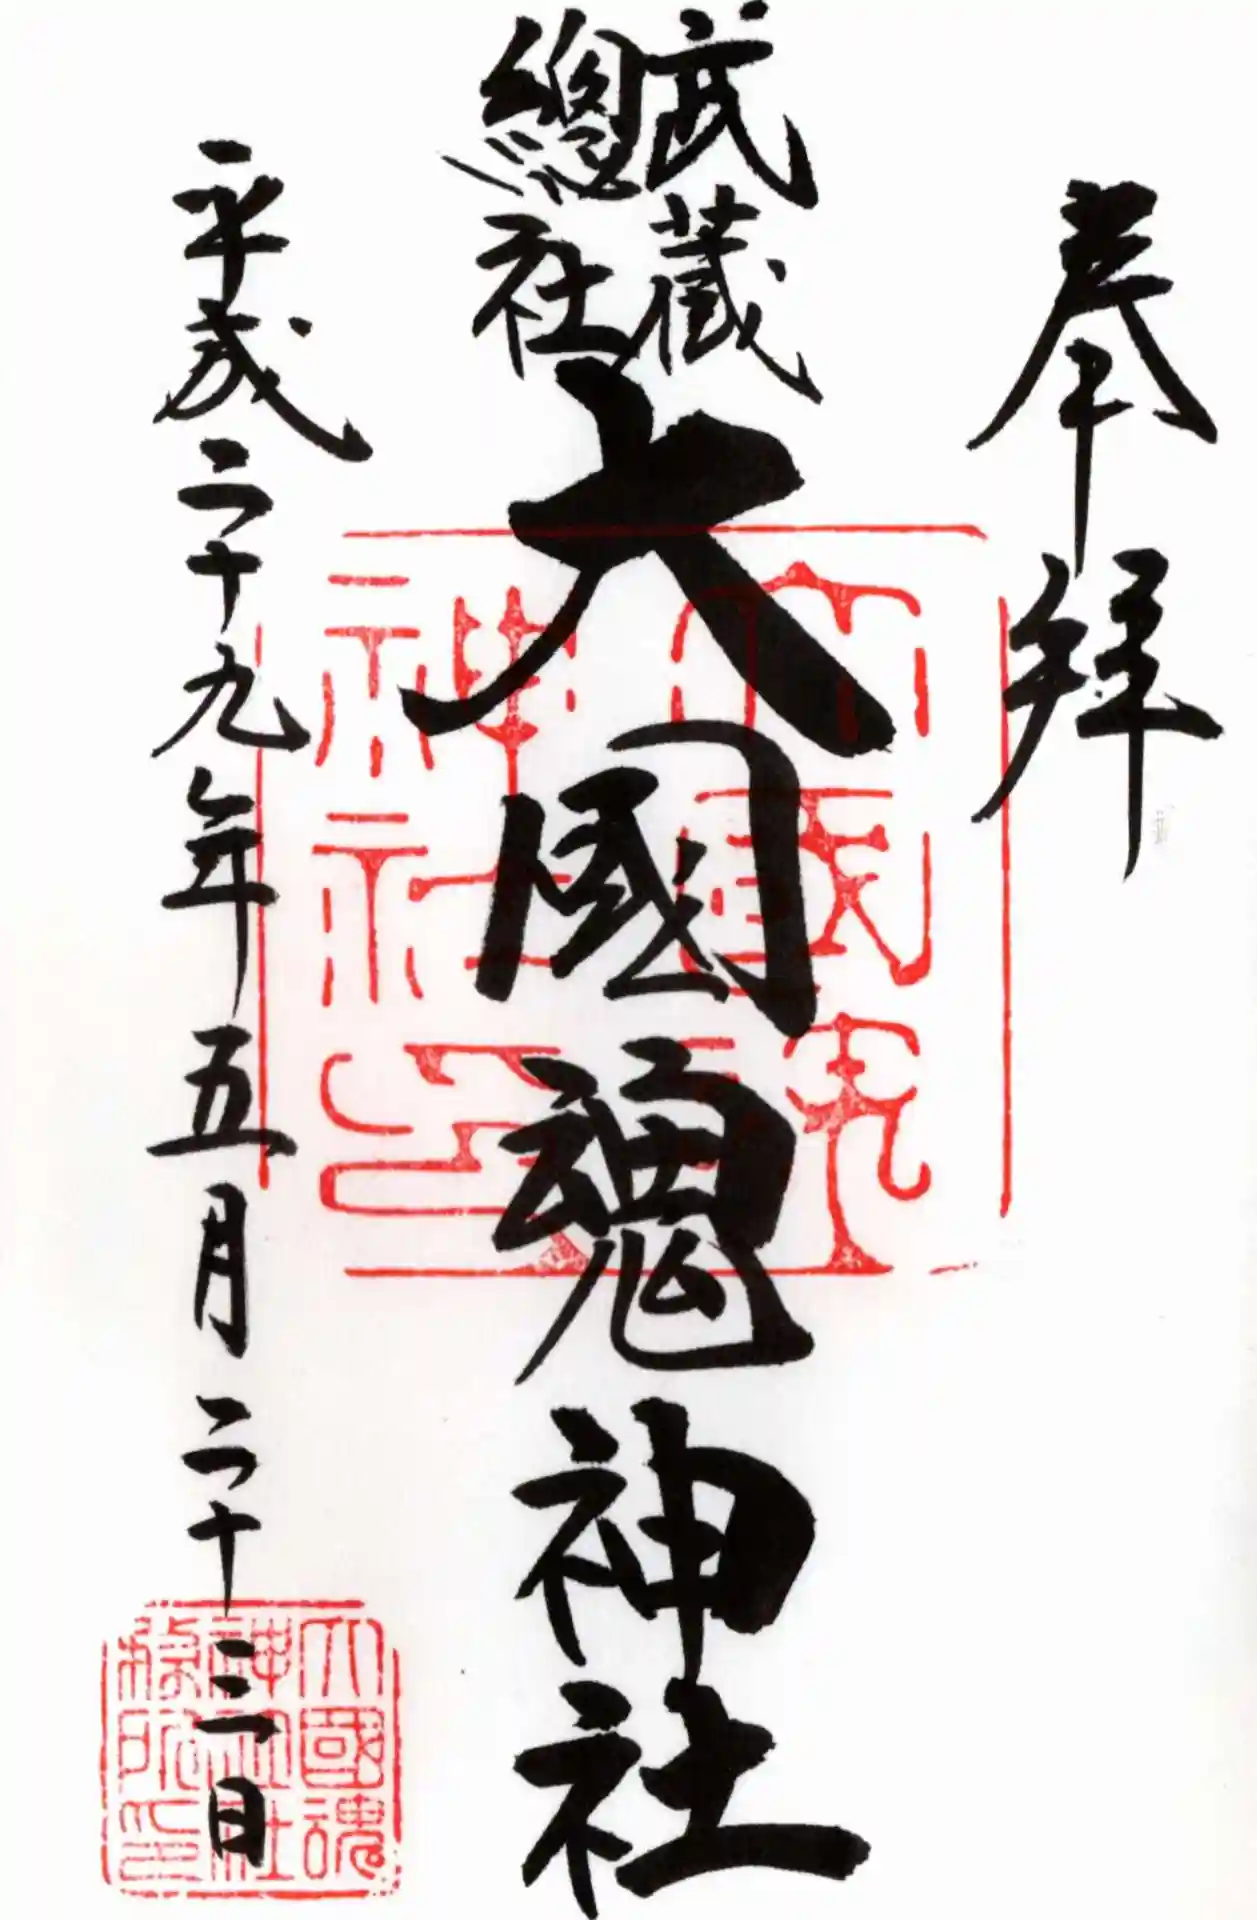 奉拜
武蔵
總社
大國魂神社
平成二十九年五月二十三日
大國魂
神社
神社印
大國魂
神社社
務所印